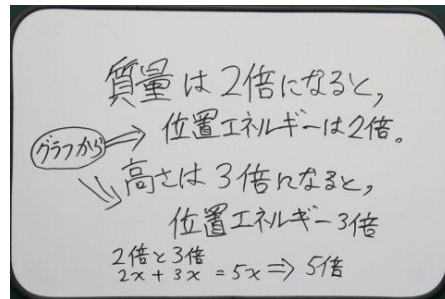 質量は2倍になると,
位置エネルギーは2倍。
グラフから
高さは3倍になると,
位置エネルギー3倍
2倍と3倍
2x + 3x = 5x ⇒ 5倍